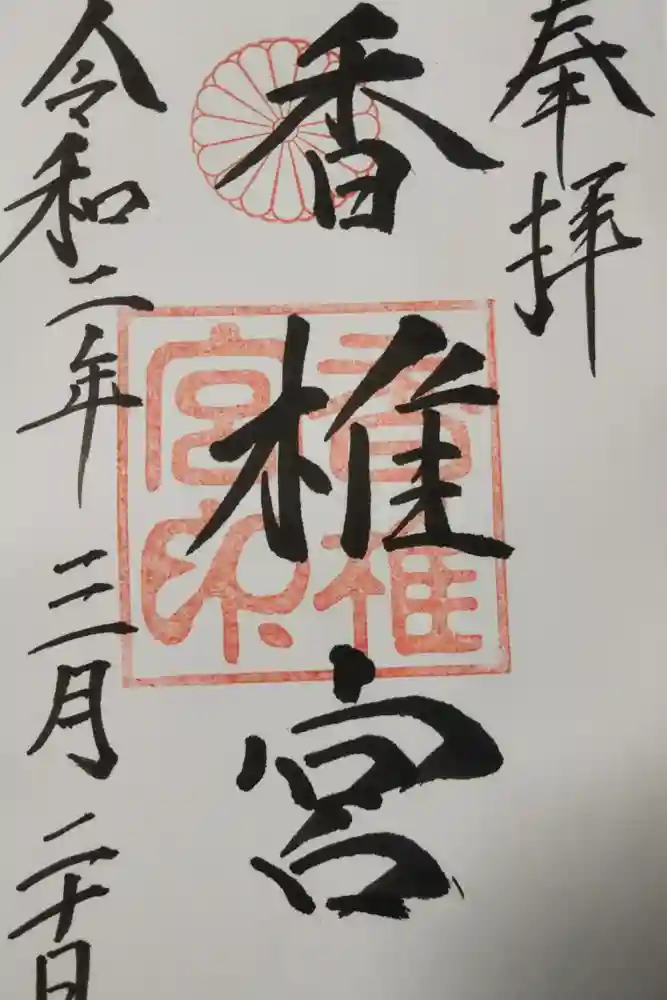 奉拝
香椎宮
香椎宮印
令和二年三月二十日